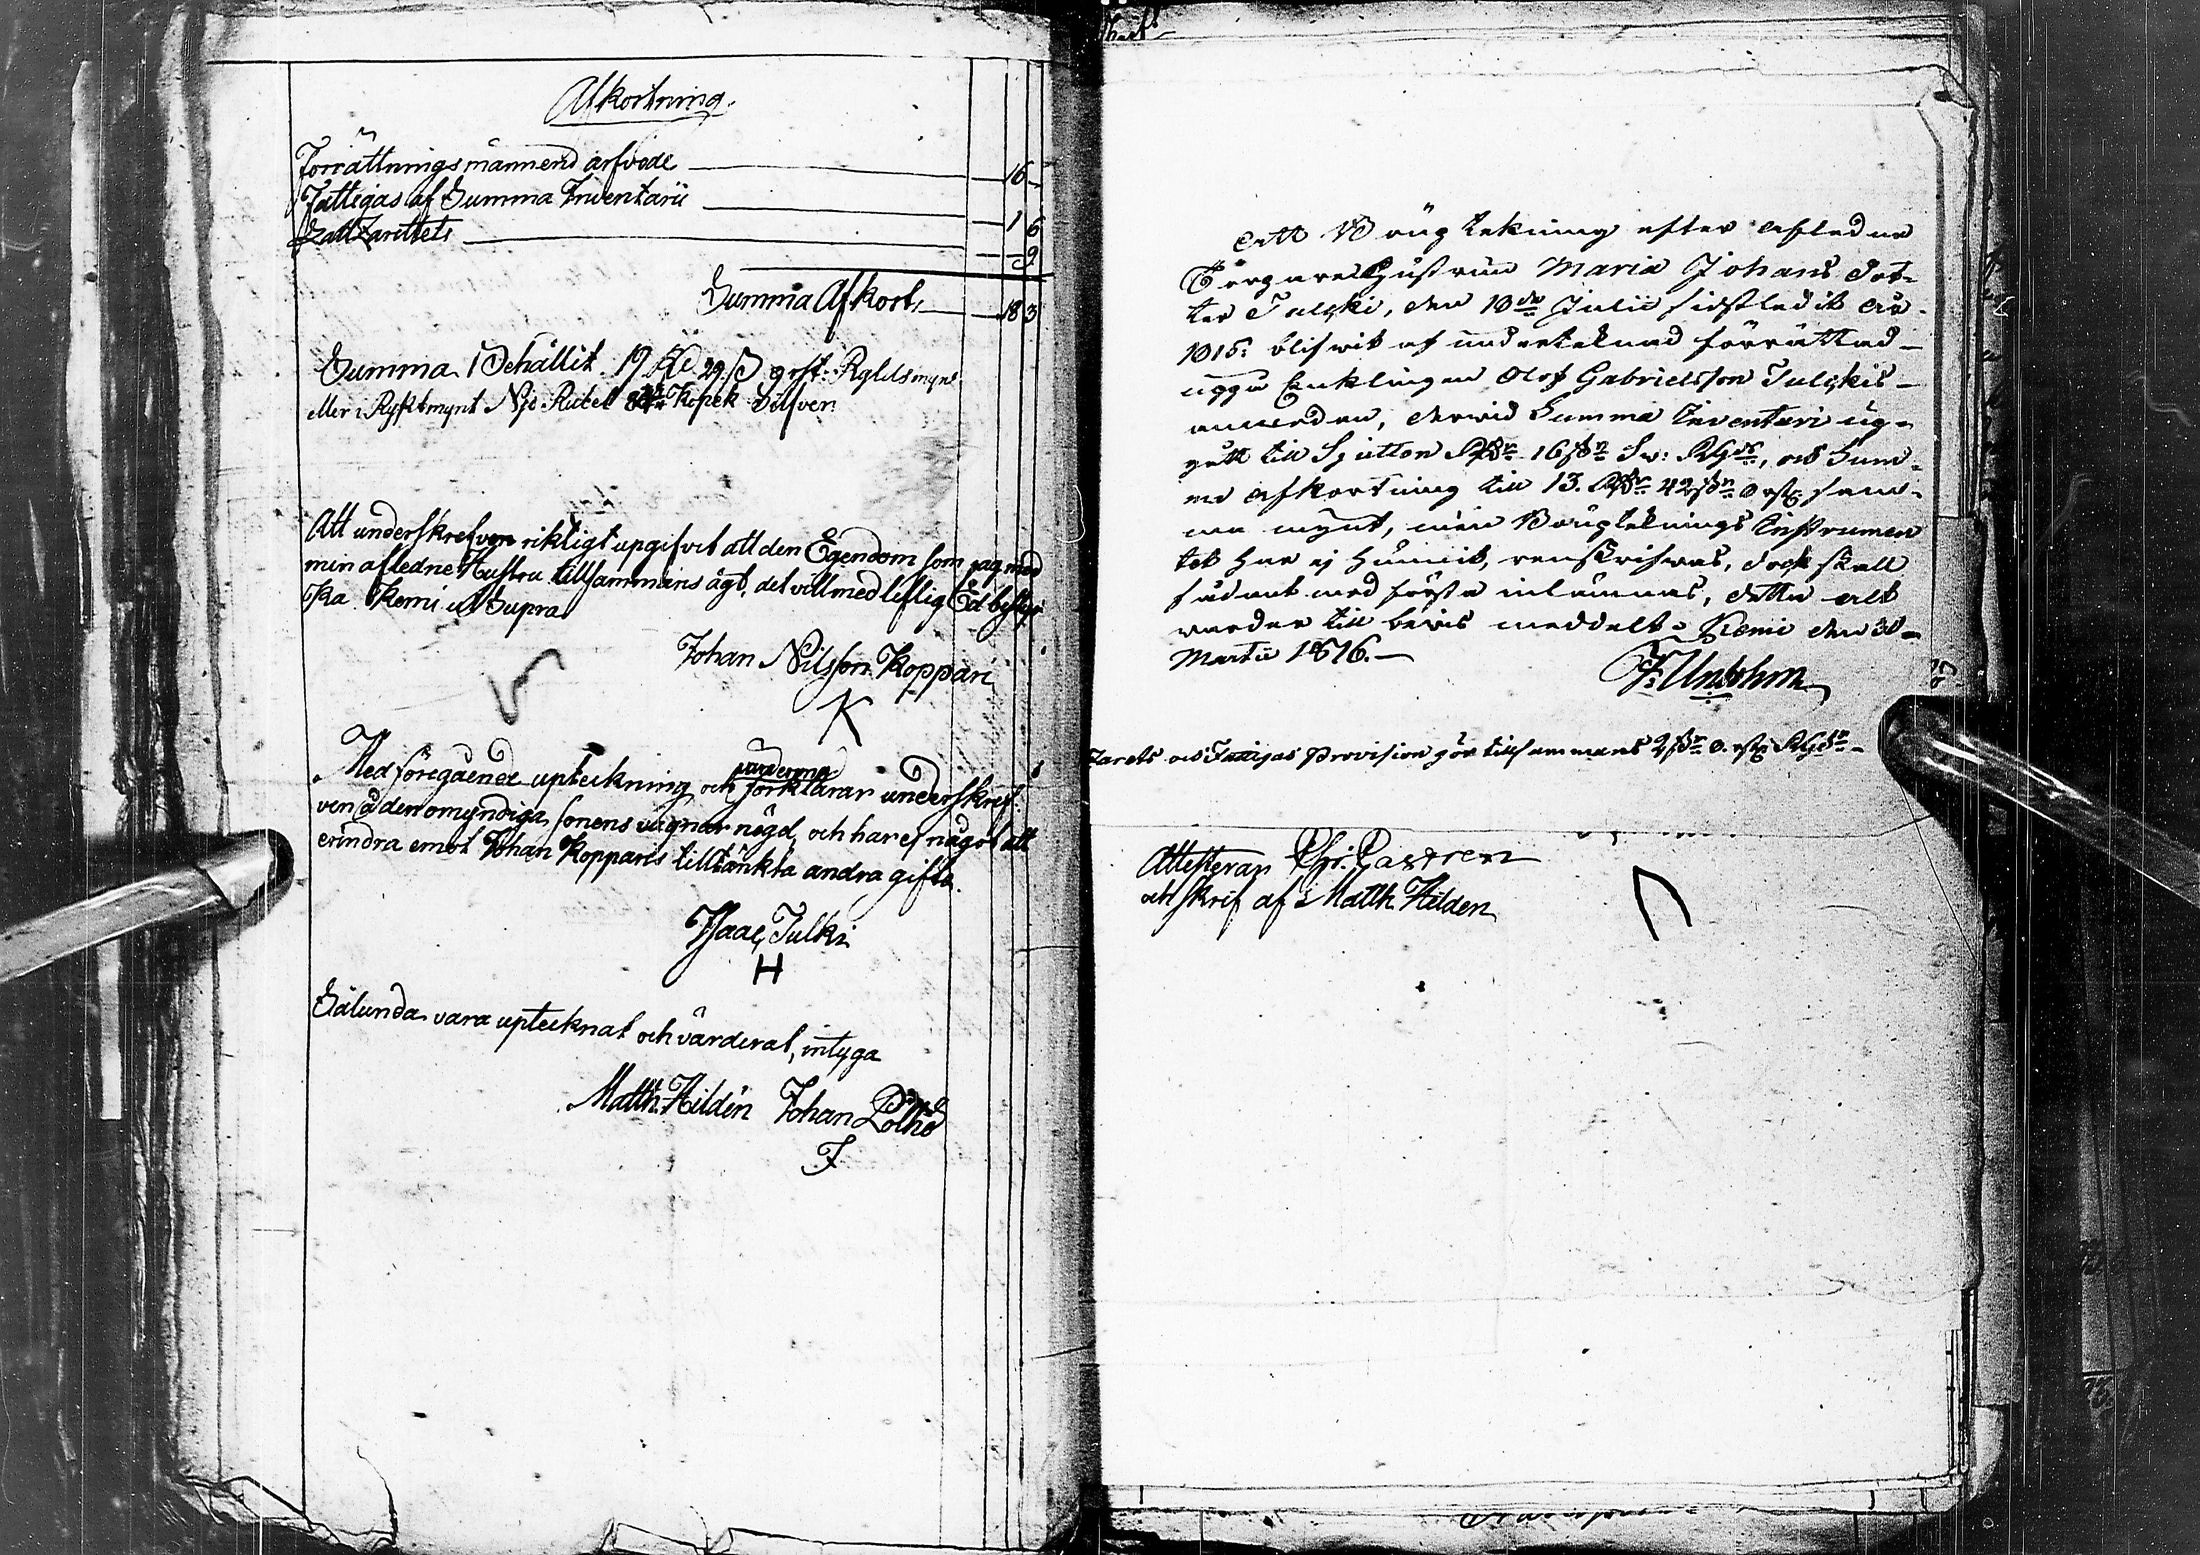 Afkortning.
Förrättningsmännens arfvode — 16 —
Fattigas af Summa Inventarii — 1 6
Lazarettets — — 9
Summa Afkort. — 18 3
Summa Behållit. 19 Rd. 29. ß Rgldsmynt
eller i Ryskt mynt Nijo Rubel Kopek Silfver
Att underskrefven riktigt upgifvit att den Egendom som jag med
min afledne Hustru tillsammans ägt, det vill med liflig Ed bestyr
ka Kemi ut Supra
Johan Nilsson Koppari
K
Med föregående upteckning och värdering förklarar underskref
ven å den omyndiga sonens vägnar nögd, och har ej något att
erindra emot Johan Kopparis tilltänkta andra gifte.
Isaac Julki
H
Sålunda vara upteknat och värderat, intyga
Matth. Hildén Johan Pölhö
J
Att Bouptekning efter afledne
Torpare Hustrun Maria Johans dot-
ter Julski, den 10de Julii sidstledit år
1815: blifwit af underteknad förrättad
uppå Enklingen Olof Gabrielsson Julskis
anmodan, derwid Summa Inventari up-
gått till Sjutton Rdr 16 ßr Sv: Rgds, och Sum-
ma afkortning till 13. Rdr 42 ßr sam-
ma mynt, men Bouptknings Instrumen
tet har ej hunnit, renskrifwas, dock skall
sådant med första inlämnas, detta alt
warder till bevis meddelt. Kemi den
Martii 1816. —
zarets och Fattigas Provision gör tillsammans 2 ßr Rgds
Attesterar Chr: Castren
och skrif af Matth Hilden